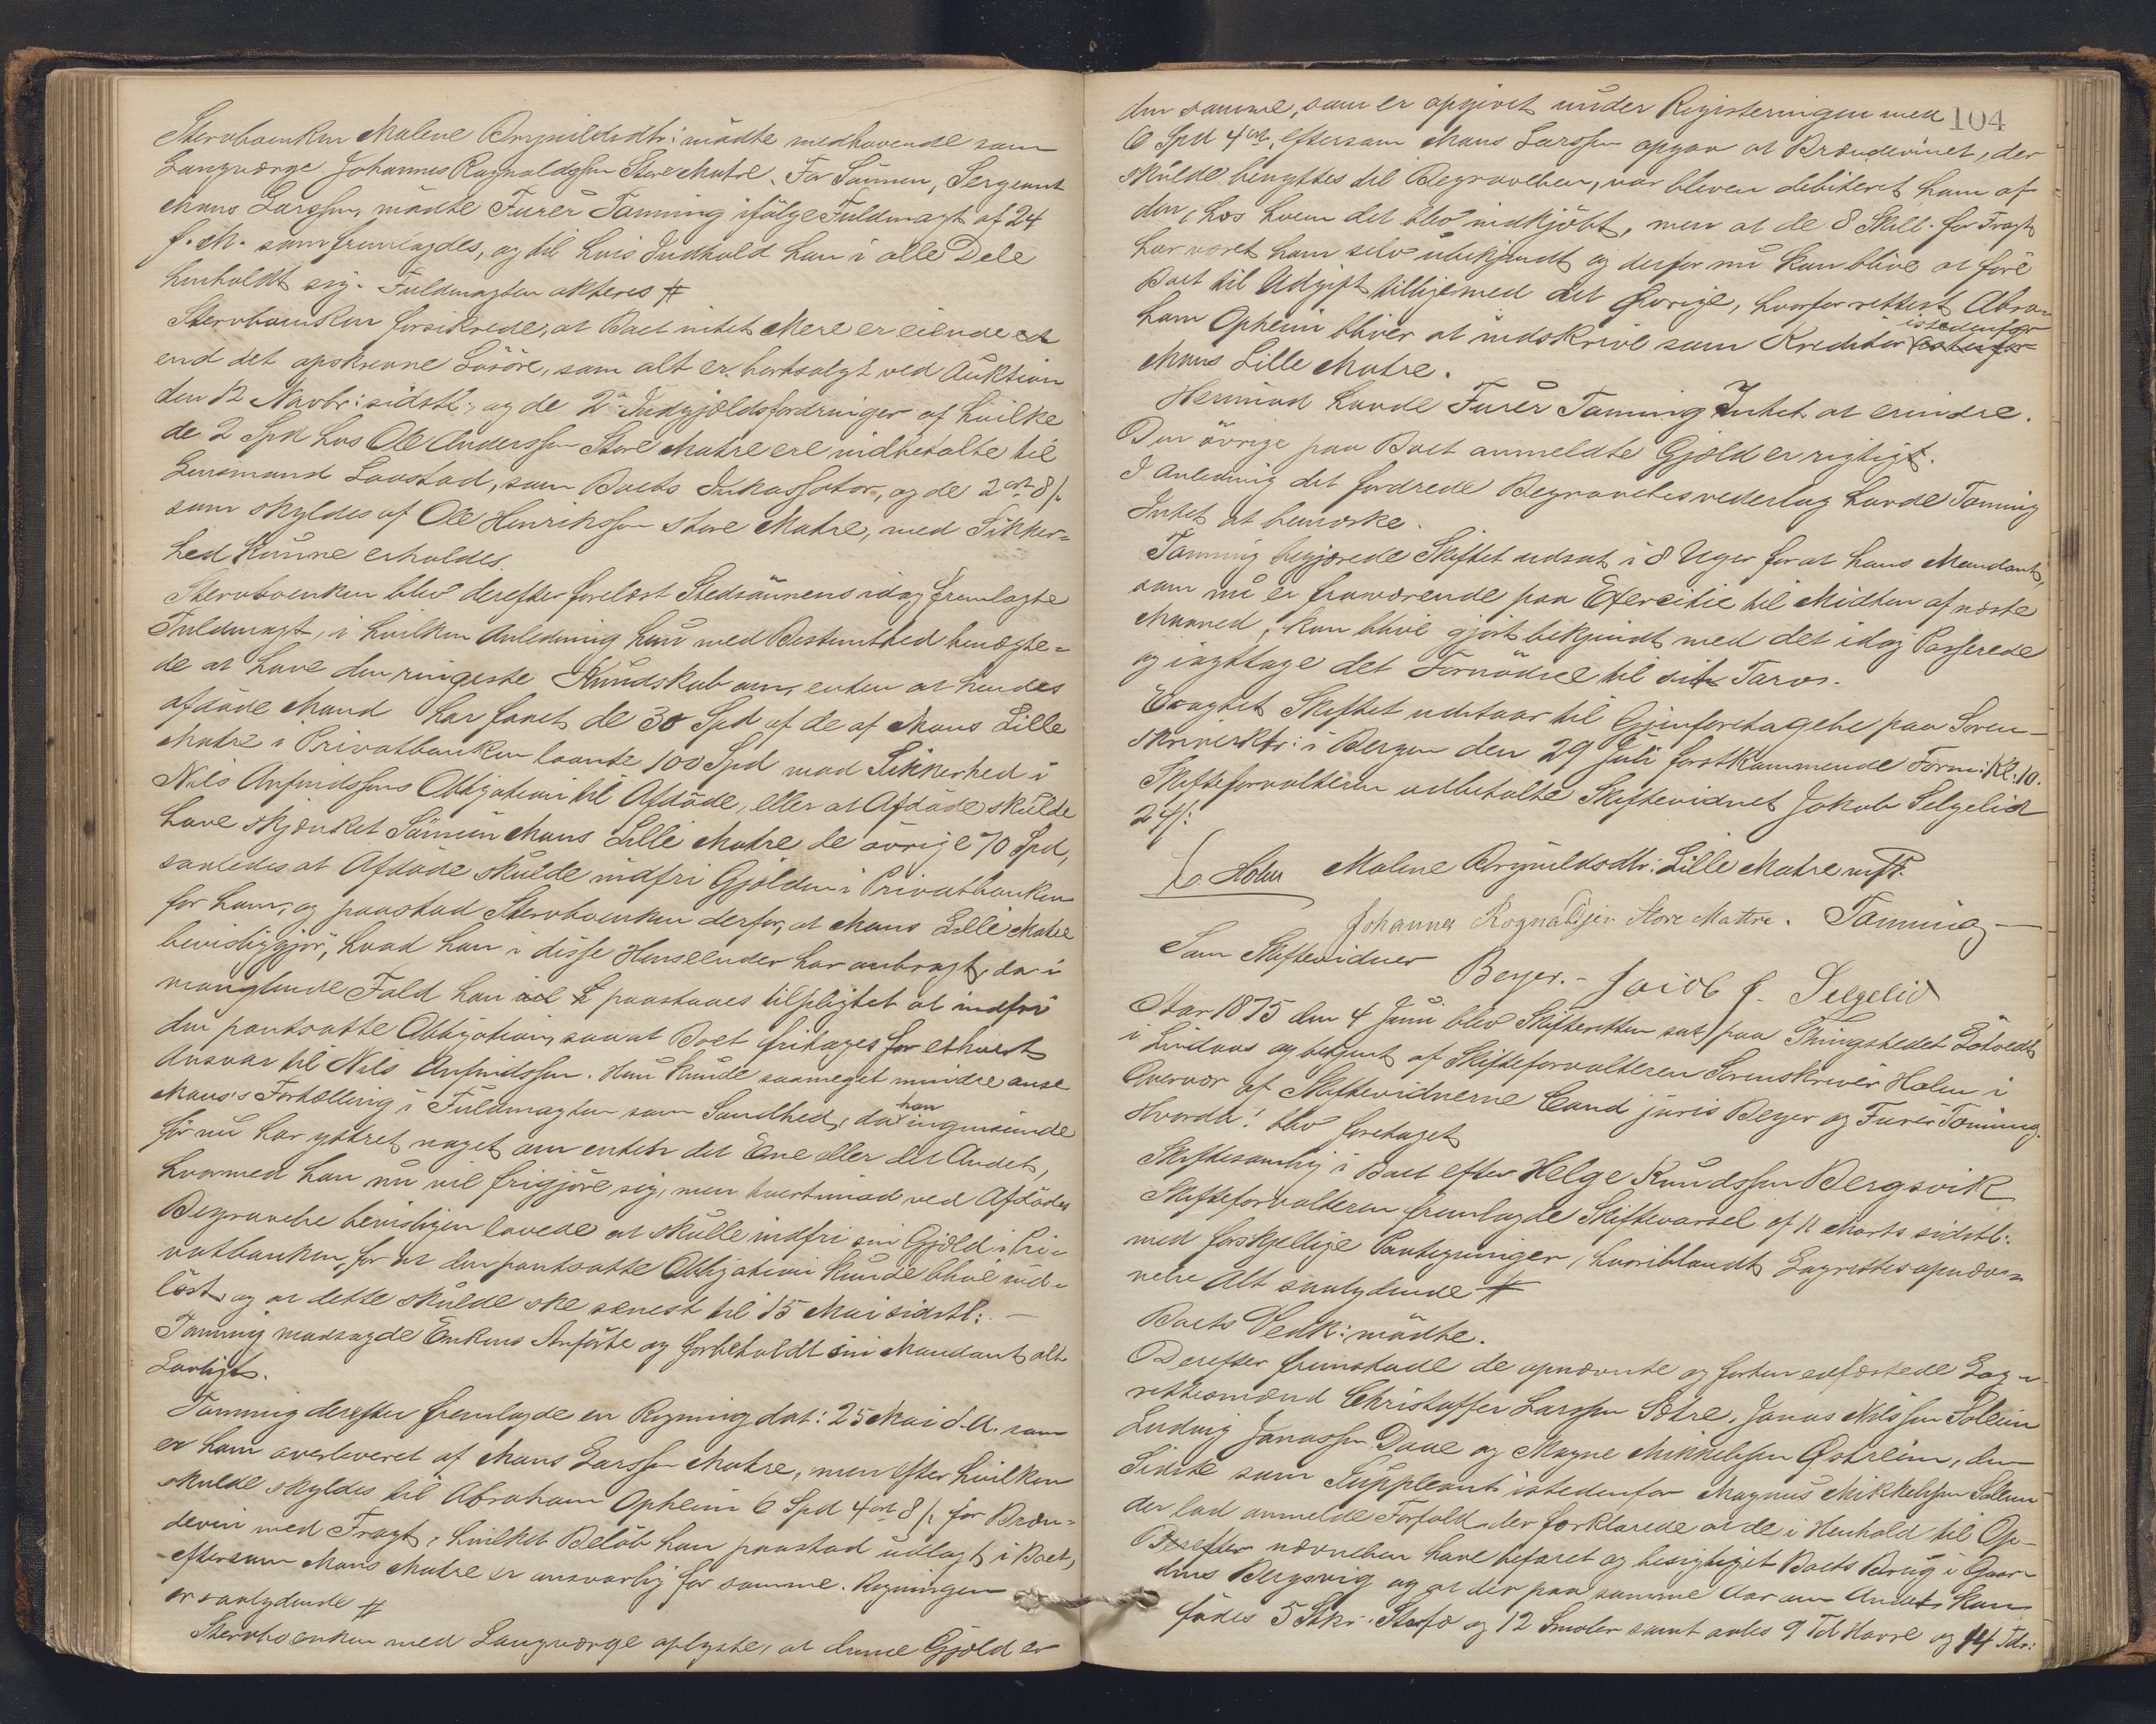 Stervboenken Malene Brynildsdtr: mødte medhavende som
Laugværge Johannes Ragnaldssen Store Matre. For Sønnen, Sergeant
Mans Larssen, mødte Furer Tanning ifølge Fuldmagt af 24
f. M. som fremlagdes, og til hvis Indhold han i alle Dele
henholdt sig. Fuldmagten akteres #
Stervboenken forsikrede, at Boet intet Mere er eiende
end det opskrevne Løsøre, som alt er bortsolgt ved Auktion
den 12 Novbr: sidstl:, og de 2de Indgjældsfordringer af hvilke
de 2 Spd hos Ole Anderssen Store Matre ere indbetalte til
Lensmand Laastad, som Boets Inkassator, og de 2 ort 8 s.
som skyldes af Ole Henrikssen Store Matre, med Sikker=
hed kunne erholdes.
Stervboenken blev derefter forelæst Stedsønnens idag fremlagte
Fuldmagt, i hvilken Anledning hun med Bestemthed benægte=
de at have den ringeste Kundskab om, enten at hendes
afdøde Mand har faaet de 30 Spd af de af Mans Lille
Matre i Privatbanken laante 100 Spd mod Sikkerhed i
Nils Anfindssens Obligation til Afdøde, eller at Afdøde skulde
have skjænket Sønnen Mans Lille Matre de øvrige 70 Spd,
saaledes at Afdøde skulde indfri Gjælden i Privatbanken
for ham, og paastod Stervboenken derfor, at Mans Lille Matre
bevisliggjør, hvad han i disse Henseender har anbragt, da i
manglende Fald han paastaaes tilpligtet at indfri
den pantsatte Obligation, saa at Boet fritages for ethvert
Ansvar til Nils Anfindssen. Hun kunde saameget mindre anse
Mans's Fortælling i Fuldmagten som Sandhed, da han ingensinde
før nu har ytret noget om enten det Ene eller det Andet,
hvormed han nu vil frigjøre sig, men tvertimod ved Afdødes
Begravelse bevisligen lovede at skulle indfri sin Gjæld i Pri=
vatbanken, for at den pantsatte Obligation kunde blive ind=
løst, og at dette skulde ske senest til 15 Mai sidstl: —
Tanning modsagde Enkens Anførte og forbeholdt sin Mandant alt
Lovligt.
Tanning derefter fremlagde en Regning dat: 25 Mai d. A. som
er ham overleveret af Mans Larssen Matre, men efter hvilken
skulde skyldes til Abraham Opheim 6 Spd 4 ort 8 s. for Bræn=
devin med Fragt, hvilket Beløb han paastod udlagt i Boet,
eftersom Mans Matre er ansvarlig for samme. Regningen
er saalydende #
Stervboenken med Laugværge oplyste, at denne Gjæld er
104
den samme, som er opgivet under Registeringen med
6 Spd 4 ort, eftersom Mans Larssen opgav at Brændevinet, der
skulde benyttes til Begravelsen, var bleven debiteret ham af
den, hos hvem det blev indkjøbt, men at de 8 Skill. for Fragt
har været ham selv ubekjendt og derfor nu kan blive at føre
Boet til Udgift tilligemed det Øvrige, hvorfor rettest Abra=
ham Opheim bliver at indskrive som Kreditor istedenfor
Mans Lille Matre.
Herimod havde Furer Tanning Intet at erindre.
Den øvrige paa Boet anmeldte Gjæld er rigtigt.
I Anledning det fordrede Begravelsesvederlag havde Tanning
Intet at bemærke.
Tanning begjærede Skiftet udsat i 8 Uger for at hans Mandant,
som nu er fraværende paa Exercitie til Midten af næste
Maaned, kan blive gjort bekjendt med det idag Passerede
og iagttage det Fornødne til sit Tarv.
Eragtet Skiftet udstaar til Gjenforetagelse paa Soren=
skriverktr: i Bergen den 29 Juli førstkommende Form: Kl. 10.
Skifteforvalteren udbetalte Skiftevidnet Jakob Selgelid
24 s:
Holm Malene Brynildsdtr: Lille Matre mfP.
Johannes Rognaldsen Store Mattre. Tanning
Som Skiftevidner
Beyer. - Jacob J. Selgelid
Aar 1875 den 4 Juni blev Skifteretten sat paa Thingstedet
i Lindaas og betjent af Skifteforvalteren Sorenskriver Holm i
Overvær af Skiftevidnerne Cand juris Beyer og Furer Tanning.
Hvorda! blev foretaget
Skiftesamling i Boet efter Helge Knudssen Bergsvik
Skifteforvalteren fremlagde Skiftevarsel af 11 Marts sidstl:
med forskjellige Paategninger, hvoriblandt Lagrettesopnæv=
nelse Alt saalydende #
Boets Vedk: mødte.
Derefter fremstode de opnævnte og forhen edfæstede Lag=
rettesmænd Christoffer Larssen Sætre, Jonas Nilssen Soleim
Ludvig Jonassen Daae og Magne Mikkelssen Østreim, den
Sidste som Suppleant istedenfor Magnus Mikkelssen Solem
der lod anmelde Forfald, der forklarede at de i Henhold til Op=
nævnelsen have befaret og besigtiget Boets Brug i Gaar=
dens Bergsvig og at der paa samme Aar om Andet kan
fødes 5 Stkr: Storfæ og 12 Smaler samt avles 9 Td Havre og 14 Tdr: